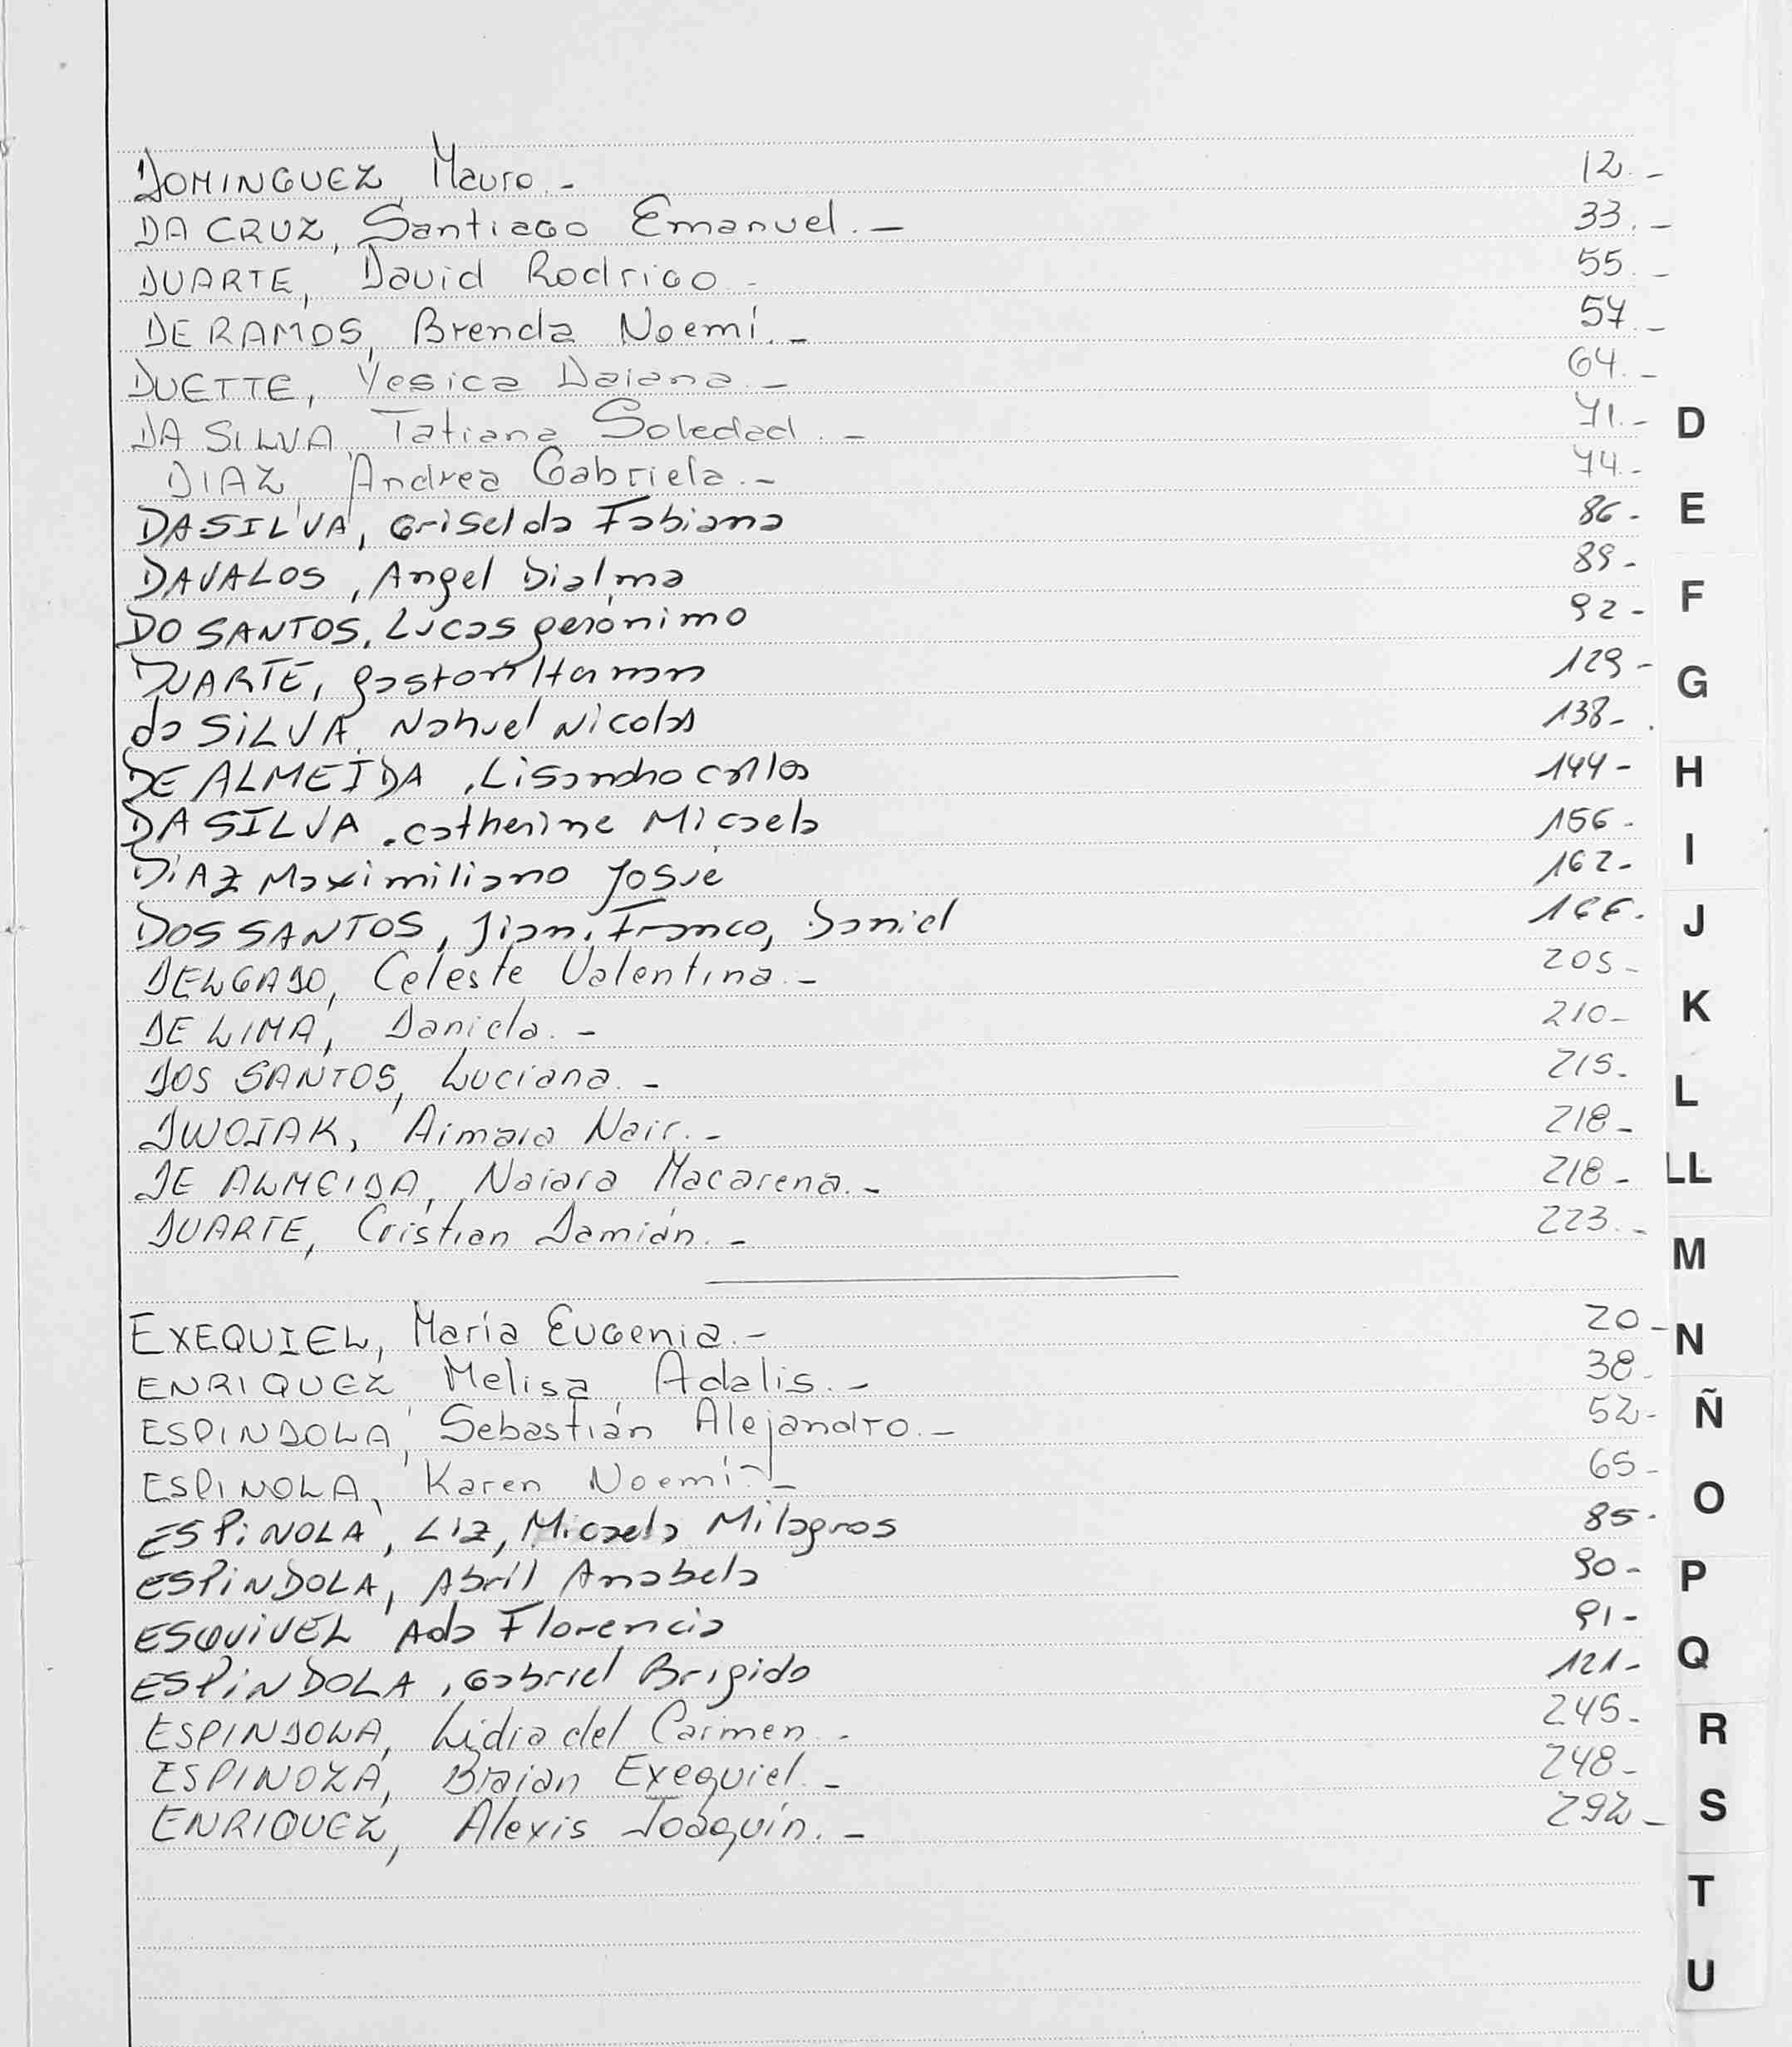 DOMINGUEZ Mauro.- 12.-
DA CRUZ, Santiago Emanuel.- 33.-
DUARTE, David Rodrigo.- 55.-
DE RAMOS, Brenda Noemí.- 57.-
DUETTE, Yesica Daiana.- 64.-
DA SILVA, Tatiana Soledad.- 71.-
DIAZ, Andrea Gabriela.- 74.-
DASILVA, Griselda Fabiana 86-
DAVALOS, Angel Dialma 89-
DO SANTOS, Lucas gerónimo 92-
DUARTE, gaston Hernan 129-
da SiLVA, Nahuel Nicolas 138-
DE ALMEIDA, Lisandro carlos 144-
DA SILVA, catherine Micaela 156-
DiAZ Maximiliano Josué 162-
DOS SANTOS, Jian, Franco, Daniel 166-
DELGADO, Celeste Valentina.- 205-
DE LIMA, Daniela.- 210-
DOS SANTOS, Luciana.- 215-
DWOJAK, Aimara Nair.- 218-
DE ALMEIDA, Naiara Macarena.- 218-
DUARTE, Cristian Damián.- 223.-
EXEQUIEL, María Eugenia.- 20-
ENRIQUEZ, Melisa Adalis.- 38-
ESPINDOLA, Sebastián Alejandro.- 52-
ESPINOLA, Karen Noemí.- 65-
ESPiNOLA, Liz, Micaela Milagros 85-
ESPiNDOLA, Abril Anabela 90-
ESQUiVEL Ada Florencia 91-
ESPiNDOLA, Gabriel Brigido 121-
ESPINDOLA, Lidia del Carmen.- 245-
ESPINOZA, Braian Exequiel.- 248-
ENRIQUEZ, Alexis Joaquín.- 292-
D
E
F
G
H
I
J
K
L
LL
M
N
Ñ
O
P
Q
R
S
T
U